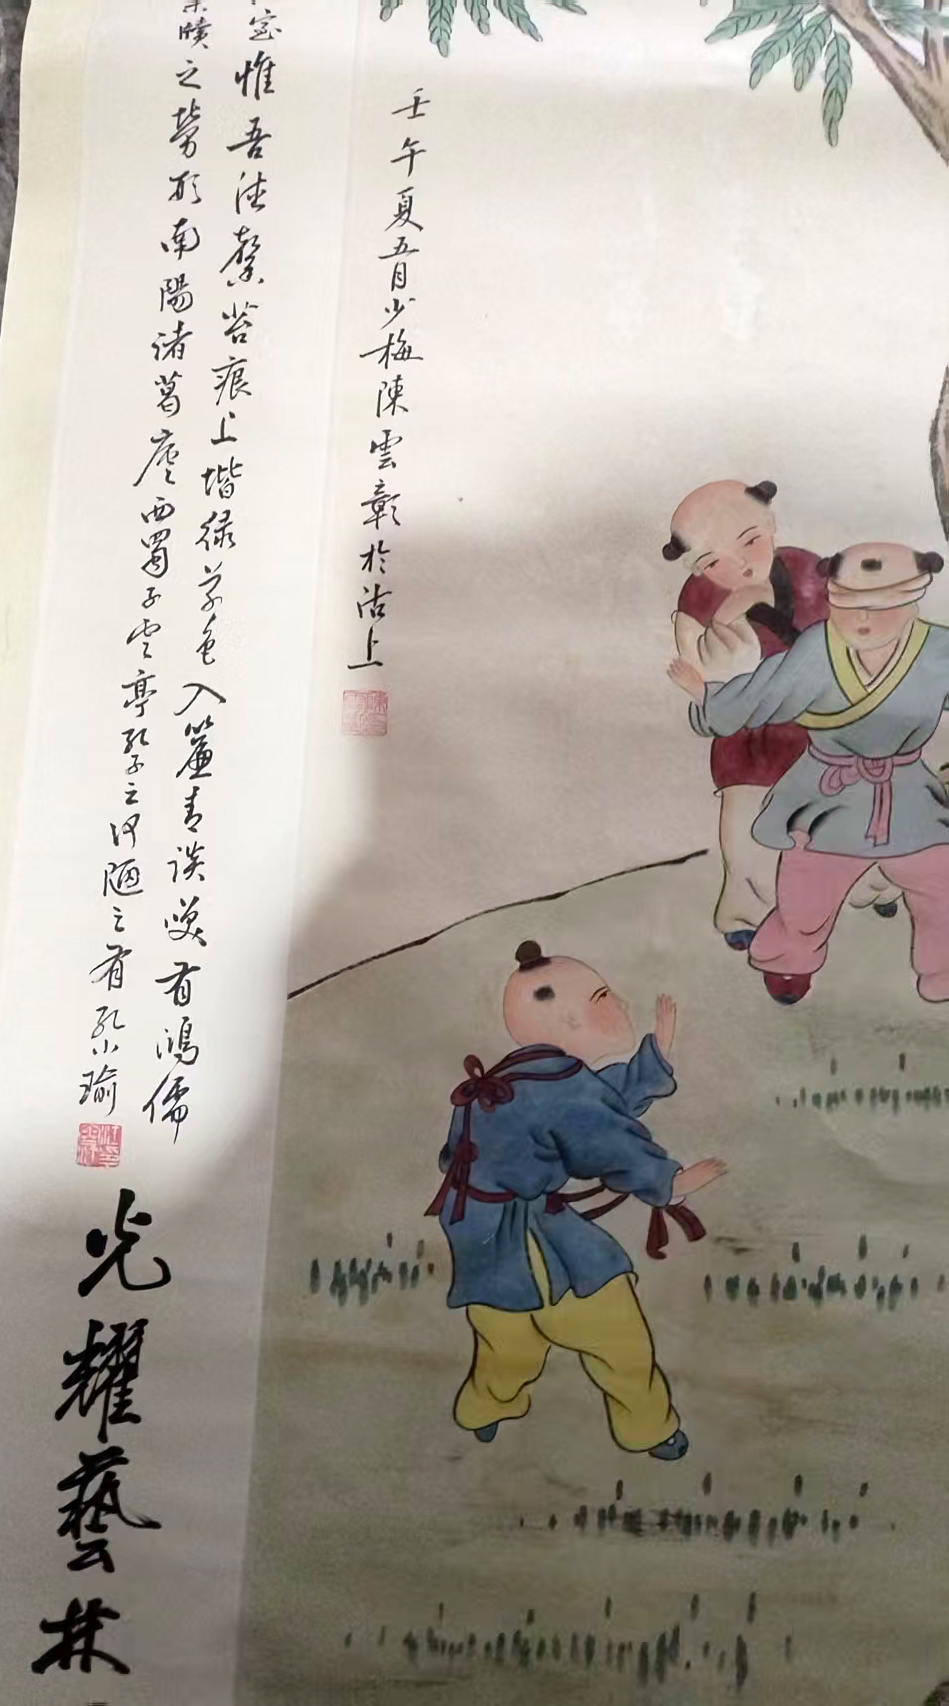 壬午夏五月少梅陳雲彰於沽上
室惟吾德馨苔痕上堦緑草色入簾青談笑有鴻儒
牘之勞形南陽諸葛廬西蜀子雲亭孔子云何陋之有孔小瑜
光耀藝林